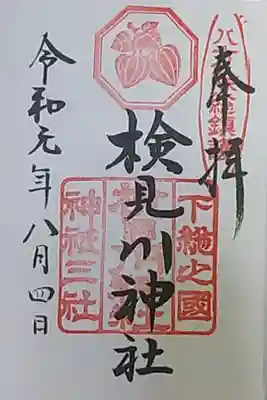 奉拝
検見川神社
下総之國
神社三社
令和元年八月四日